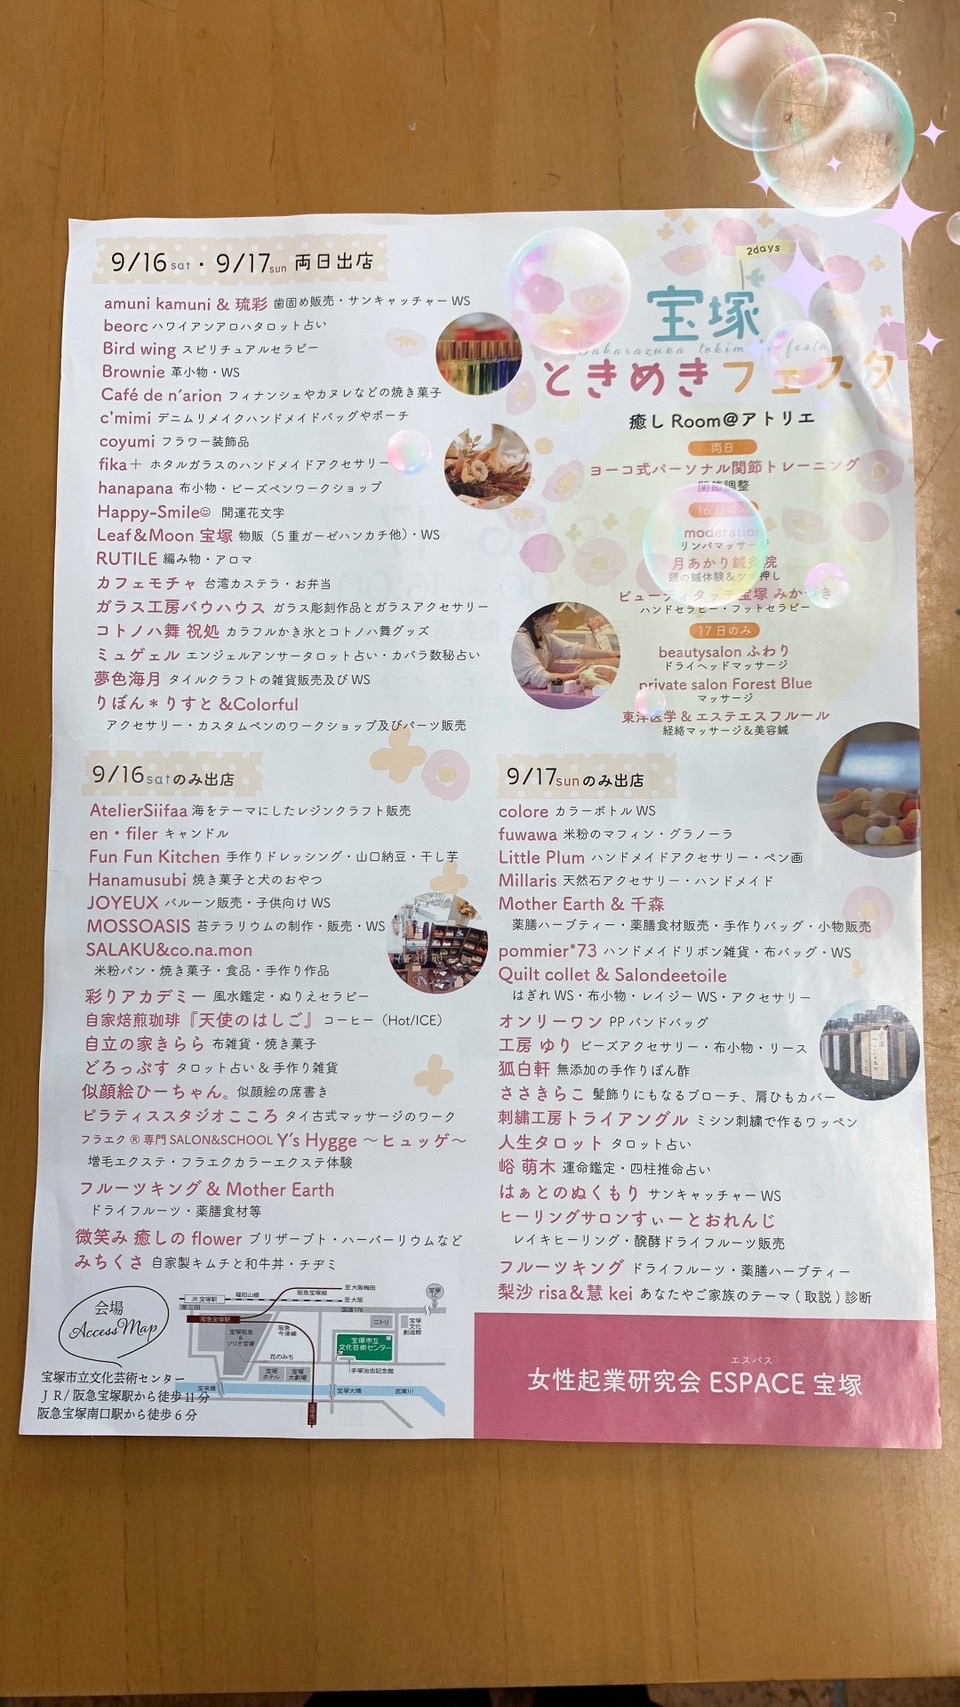 9/16sat・9/17sun 両日出店
amuni kamuni & 琉彩 歯固め販売・サンキャッチャー WS
beorc ハワイアンアロハタロット占い
Bird wing スピリチュアルセラピー
Brownie 革小物・WS
Café de n'arion フィナンシェやカヌレなどの焼き菓子
c'mimi デニムリメイクハンドメイドバッグやポーチ
coyumi フラワー装飾品
fika＋ ホタルガラスのハンドメイドアクセサリー
hanapana 布小物・ビーズペンワークショップ
Happy-Smile☺ 開運花文字
Leaf＆Moon 宝塚 物販（5 重ガーゼハンカチ他）・WS
RUTILE 編み物・アロマ
カフェモチャ 台湾カステラ・お弁当
ガラス工房バウハウス ガラス彫刻作品とガラスアクセサリー
コトノハ舞 祝処 カラフルかき氷とコトノハ舞グッズ
ミュゲェル エンジェルアンサータロット占い・カバラ数秘占い
夢色海月 タイルクラフトの雑貨販売及び WS
りぼん＊りすと &Colorful
アクセサリー・カスタムペンのワークショップ及びパーツ販売
2days
宝塚
ときめきフェスタ
癒し Room@アトリエ
両日
ヨーコ式パーソナル関節トレーニング
関節調整
16日のみ
moderation
リンパマッサージ
月あかり鍼灸院
頭の鍼体験＆ツボ押し
ビューティタッチ宝塚 みかづき
ハンドセラピー・フットセラピー
17日のみ
beautysalon ふわり
ドライヘッドマッサージ
private salon Forest Blue
マッサージ
東洋医学＆エステエスフルール
経絡マッサージ＆美容鍼
9/16satのみ出店
AtelierSiifaa 海をテーマにしたレジンクラフト販売
en・filer キャンドル
Fun Fun Kitchen 手作りドレッシング・山口納豆・干し芋
Hanamusubi 焼き菓子と犬のおやつ
JOYEUX バルーン販売・子供向け WS
MOSSOASIS 苔テラリウムの制作・販売・WS
SALAKU&co.na.mon
米粉パン・焼き菓子・食品・手作り作品
彩りアカデミー 風水鑑定・ぬりえセラピー
自家焙煎珈琲『天使のはしご』 コーヒー（Hot/ICE）
自立の家きらら 布雑貨・焼き菓子
どろっぷす タロット占い＆手作り雑貨
似顔絵ひーちゃん。似顔絵の席書き
ピラティススタジオこころ タイ古式マッサージのワーク
フラエク®専門 SALON&SCHOOL Y's Hygge 〜ヒュッゲ〜
増毛エクステ・フラエクカラーエクステ体験
フルーツキング & Mother Earth
ドライフルーツ・薬膳食材等
微笑み 癒しの flower ブリザーブト・ハーバーリウムなど
みちくさ 自家製キムチと和牛丼・チヂミ
9/17sunのみ出店
colore カラーボトル WS
fuwawa 米粉のマフィン・グラノーラ
Little Plum ハンドメイドアクセサリー・ペン画
Millaris 天然石アクセサリー・ハンドメイド
Mother Earth & 千森
薬膳ハーブティー・薬膳食材販売・手作りバッグ・小物販売
pommier*73 ハンドメイドリボン雑貨・布バッグ・WS
Quilt collet & Salondeetoile
はぎれ WS・布小物・レイジー WS・アクセサリー
オンリーワン PP バンドバッグ
工房 ゆり ビーズアクセサリー・布小物・リース
狐白軒 無添加の手作りぽん酢
ささきらこ 髪飾りにもなるブローチ、肩ひもカバー
刺繍工房トライアングル ミシン刺繍で作るワッペン
人生タロット タロット占い
峪 萌木 運命鑑定・四柱推命占い
はぁとのぬくもり サンキャッチャー WS
ヒーリングサロンすぃーとおれんじ
レイキヒーリング・醗酵ドライフルーツ販売
フルーツキング ドライフルーツ・薬膳ハーブティー
梨沙 risa＆慧 kei あなたやご家族のテーマ ( 取説 ) 診断
会場
Access Map
宝塚市立文化芸術センター
ＪＲ / 阪急宝塚駅から徒歩 11 分
阪急宝塚南口駅から徒歩 6 分
JR 宝塚駅
福知山線
阪急宝塚線
至大阪梅田
至大阪
至三田
国道176
阪急宝塚駅
阪急
今津線
宝塚阪急
&
ソリオ宝塚
宝塚市立
文化芸術センター
ニトリ
宝塚
文化
創造館
宝塚
IC
花のみち
宝塚
ホテル
宝塚
大劇場
手塚治虫記念館
宝来橋
宝塚大橋
武庫川
エスパス
女性起業研究会 ESPACE 宝塚